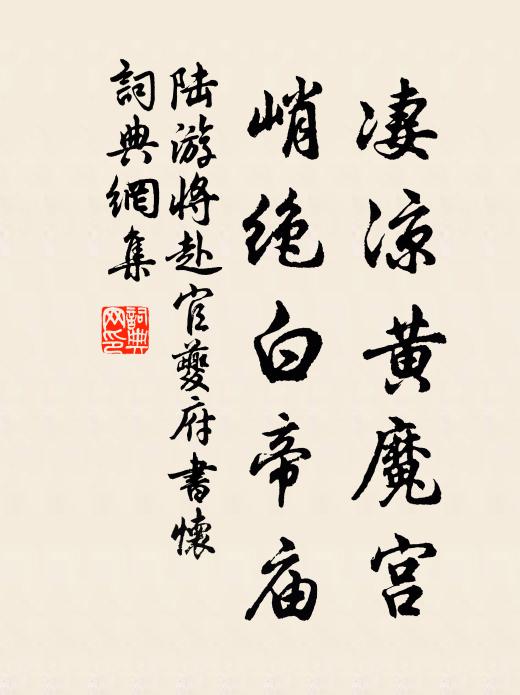 凄凉黄魔宫
峭绝白帝庙
陆游将赴官夔府书懷
詞典網集
詞典网印